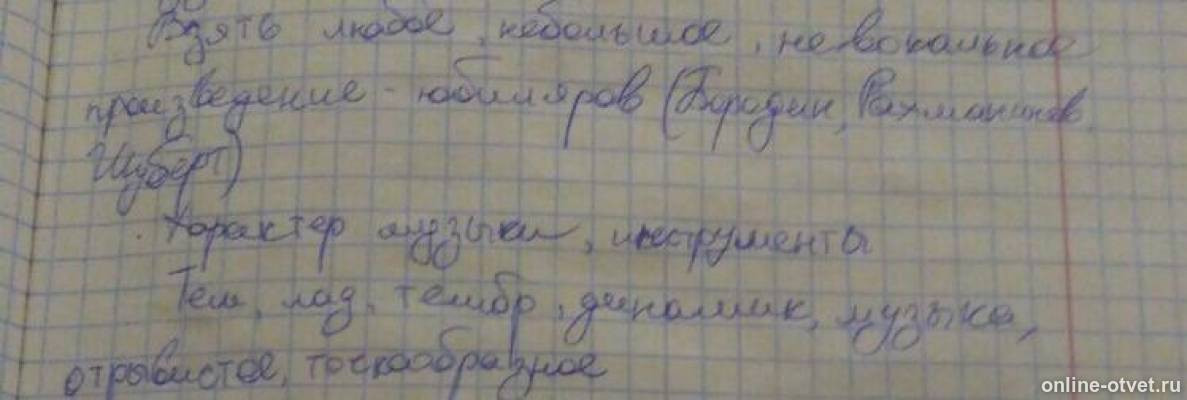 Взять любое, небольшое, невокальное
произведение - юбиляров (Бородин, Рахманинов,
Шуберт)
Характер музыки, инструменты
Тем, лад, тембр, динамик, музыка,
отрывистое, точкообразное
online-otvet.ru